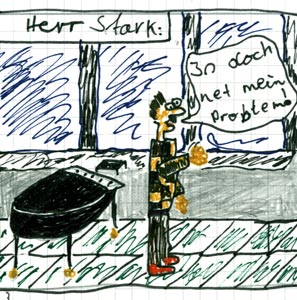 Herr Stark:
Is doch
net mein
Problem!